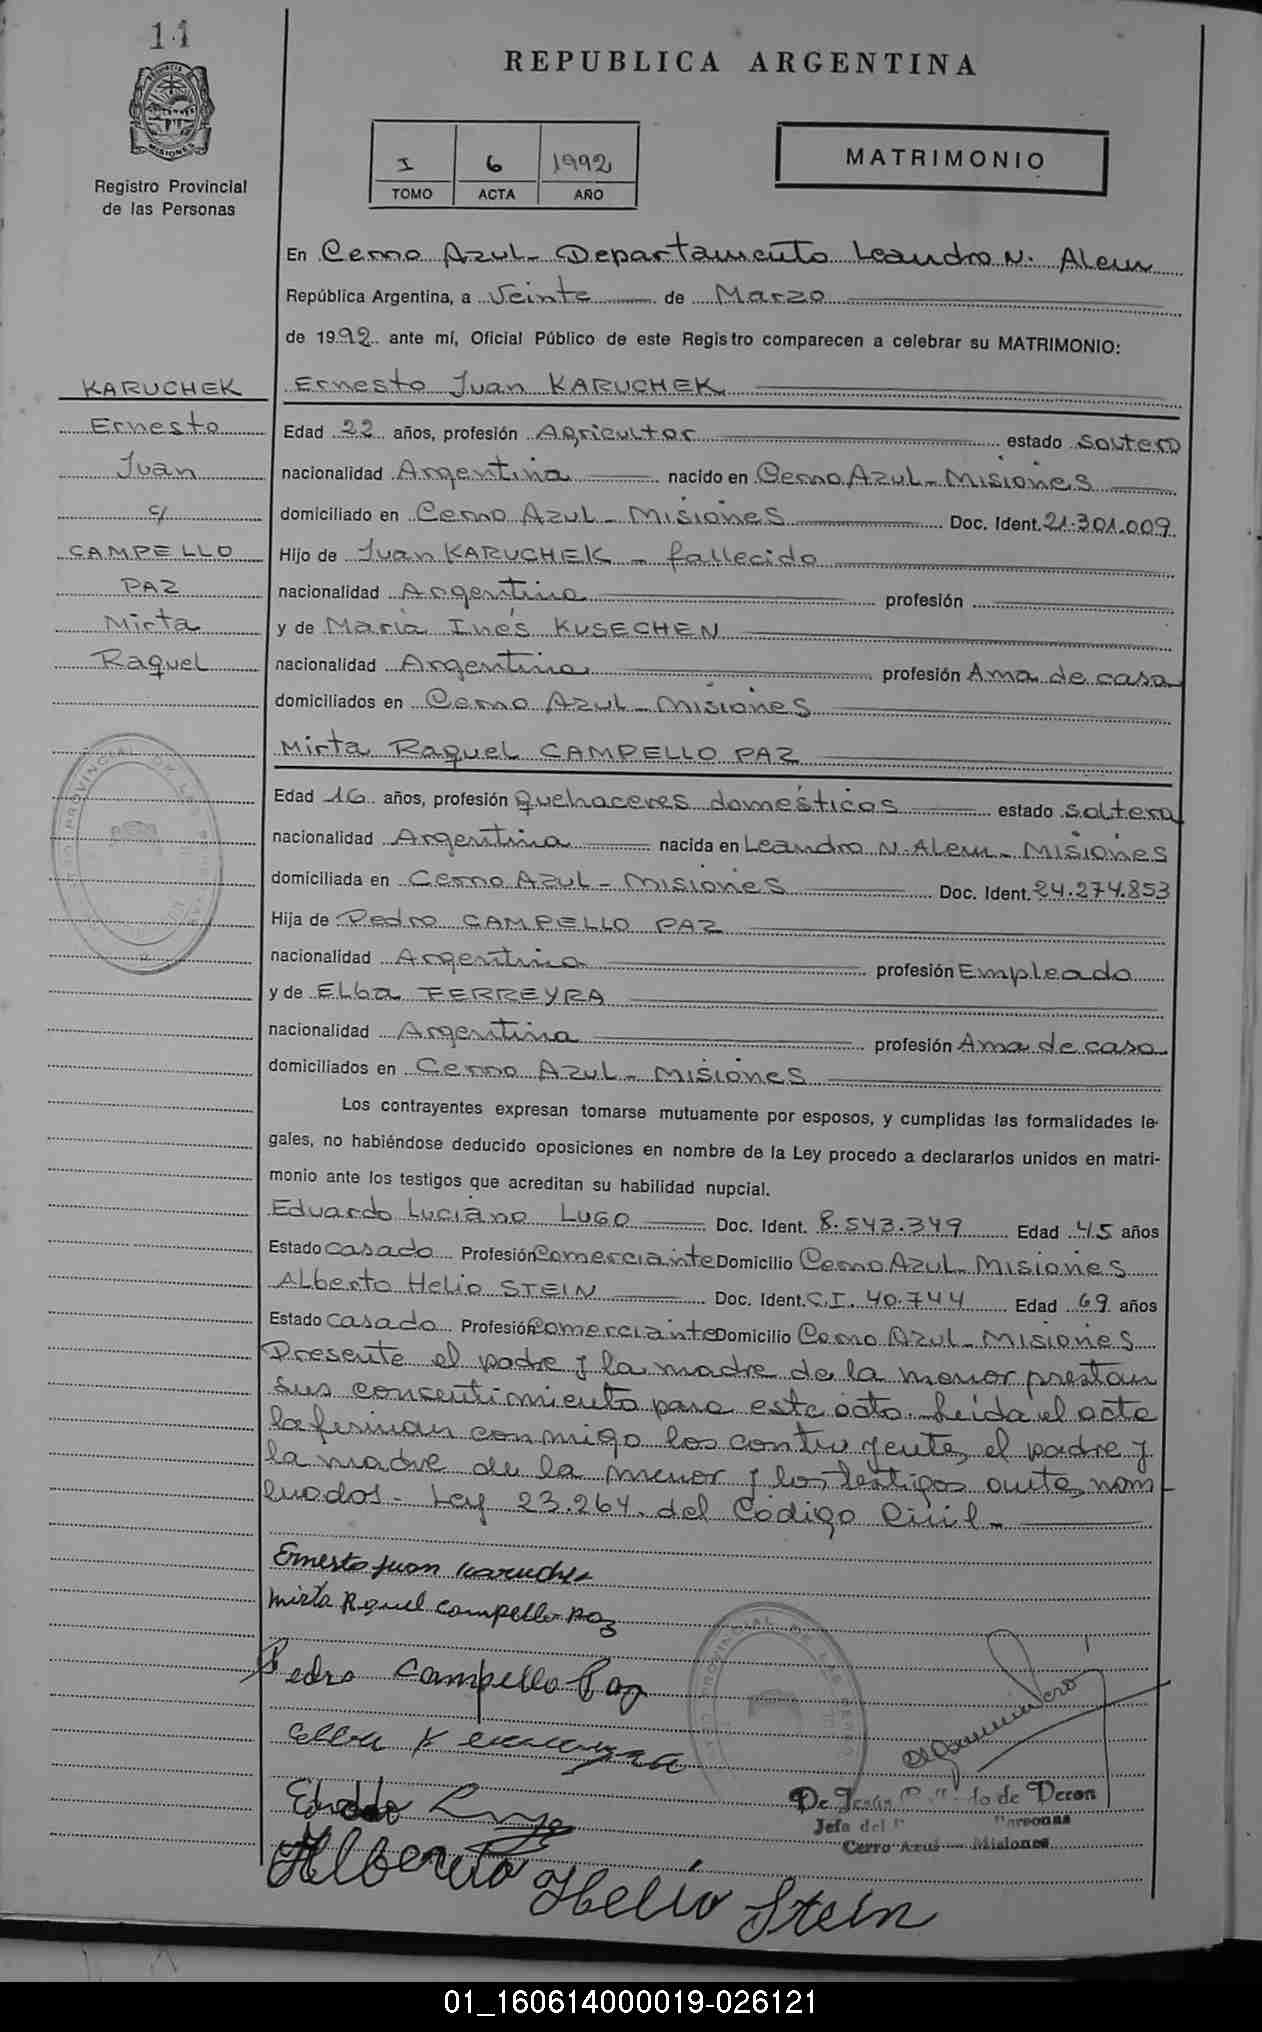 14
REPUBLICA ARGENTINA
MISIONES
Registro Provincial
de las Personas
I 6 1992
TOMO ACTA AÑO
MATRIMONIO
En Cerro Azul - Departamento Leandro N. Alem
República Argentina, a Veinte de Marzo
de 1992 ante mí, Oficial Público de este Registro comparecen a celebrar su MATRIMONIO:
KARUCHEK
Ernesto
Juan
c/
CAMPELLO
PAZ
Mirta
Raquel
Ernesto Juan KARUCHEK
Edad 22 años, profesión Agricultor estado soltero
nacionalidad Argentina nacido en Cerro Azul - Misiones
domiciliado en Cerro Azul - Misiones Doc. Ident. 21.301.009
Hijo de Juan KARUCHEK - fallecido
nacionalidad Argentina profesión
y de María Inés KUSECHEN
nacionalidad Argentina profesión Ama de casa
domiciliados en Cerro Azul - Misiones
Mirta Raquel CAMPELLO PAZ
Edad 16 años, profesión quehaceres domésticos estado soltera
nacionalidad Argentina nacida en Leandro N. Alem - Misiones
domiciliada en Cerro Azul - Misiones Doc. Ident. 24.274.853
Hija de Pedro CAMPELLO PAZ
nacionalidad Argentina profesión Empleado
y de Elba FERREYRA
nacionalidad Argentina profesión Ama de casa
domiciliados en Cerro Azul - Misiones
Los contrayentes expresan tomarse mutuamente por esposos, y cumplidas las formalidades le-
gales, no habiéndose deducido oposiciones en nombre de la Ley procedo a declararlos unidos en matri-
monio ante los testigos que acreditan su habilidad nupcial.
Eduardo Luciano LUGO Doc. Ident. 8.543.349 Edad 45 años
Estado casado Profesión Comerciante Domicilio Cerro Azul - Misiones
Alberto Helio STEIN Doc. Ident. C.I. 40.744 Edad 69 años
Estado casado Profesión Comerciante Domicilio Cerro Azul - Misiones
Presente el padre y la madre de la menor prestan
sus consentimiento para este acto. Leida el acta
la firman conmigo los contrayentes, el padre y
la madre de la menor y los testigos antes nom-
brados - Ley 23.264. del Código Civil -
Ernesto Juan Karuchek
Mirta Rquel Campello Paz
Pedro Campello Paz
Elba Ferreyra
Alberto Helio Stein
De Jesús de Peron
Jefa del Personas
Cerro Azul - Misiones
01_160614000019-026121